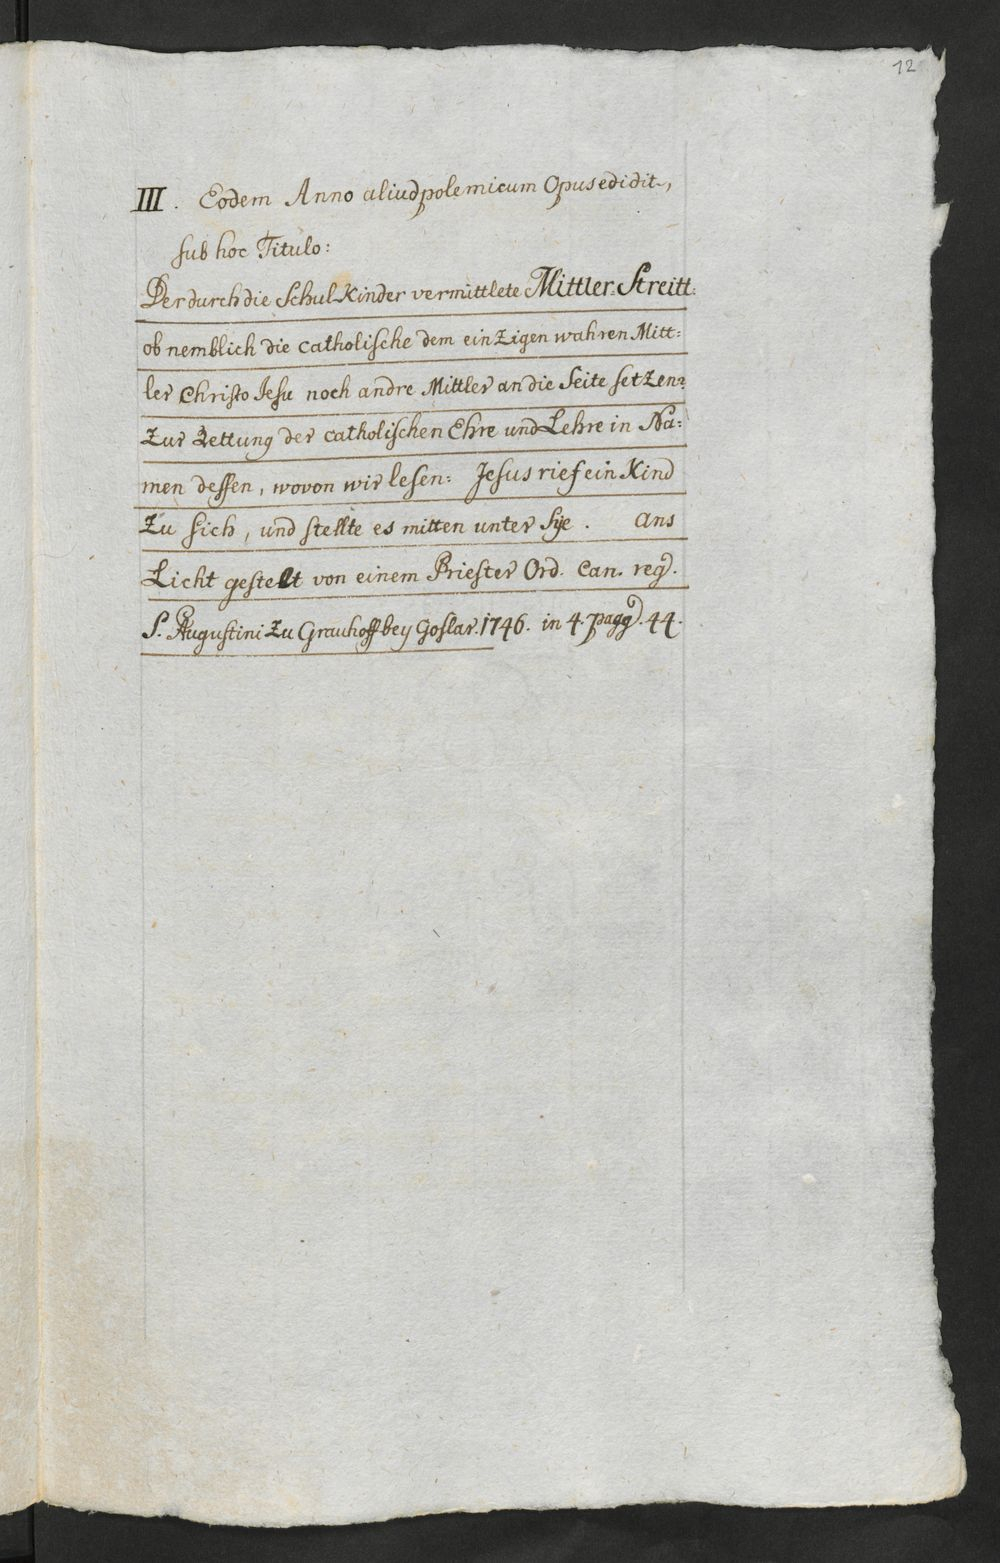 12
III. Eodem Anno aliud polemicum Opus edidit,
sub hoc Titulo:
Der durch die Schul-Kinder vermittlete Mittler-Streitt:
ob nemblich die Catholische dem einzigen wahren Mitt:
ler Christo Jesu noch andre Mittler an die Seite setzen?
Zur Rettung der catholischen Ehre und Lehre in Na:
men dessen, wovon wir lesen: Jesus rief ein Kind
Zu sich, und stellte es mitten unter Sye. Ans
Licht gestelt von einem Priester Ord. Can. reg.
S. Augustini Zu Grauhoff bey Goslar. 1746. in 4. pagg. 44.